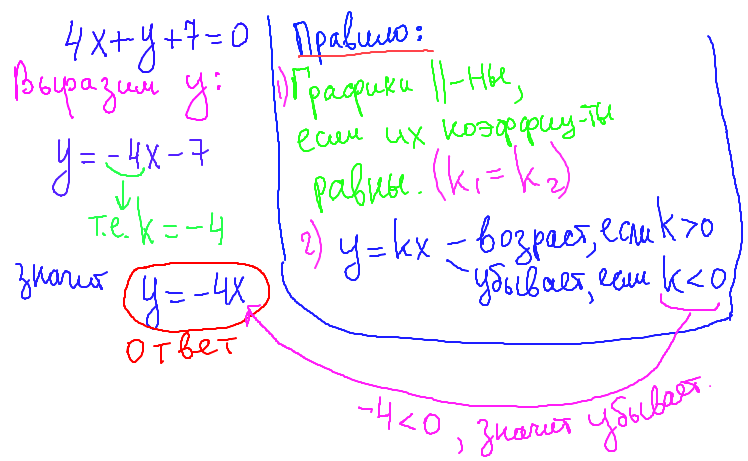 4x+y+7=0
Выразим y:
y=-4x-7
т.е. k=-4
значит y=-4x
ответ
Правило:
1) Графики ||-ны,
если их коэффиц-ты
равны. (k₁=k₂)
2) y=kx - возраст, если k>0
убывает, если k<0
-4<0, значит убывает.